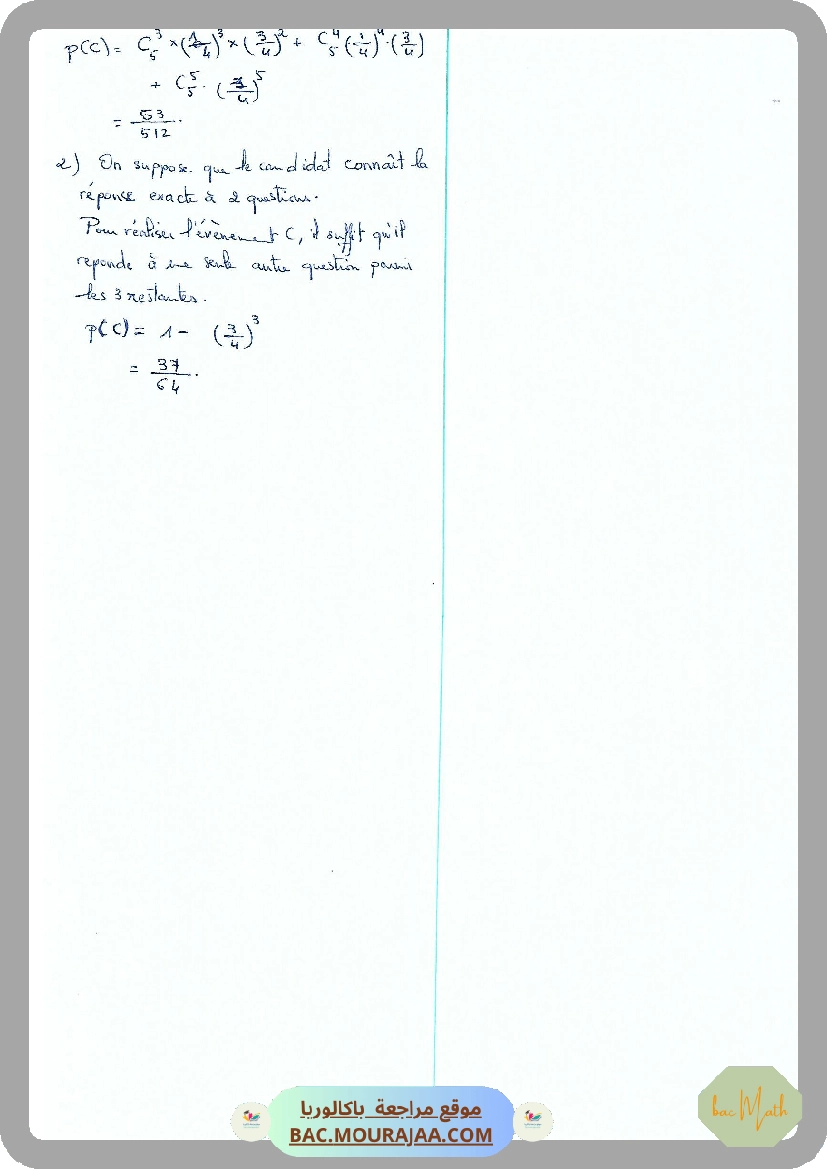 p(C) = C₅³ × (1/4)³ × (3/4)² + C₅⁴ (1/4)⁴ · (3/4)
+ C₅⁵ · (1/4)⁵
= 53/512 .
2) On suppose que le candidat connaît la
réponse exacte à 2 questions.
Pour réaliser l'évènement C, il suffit qu'il
reponde à une seule autre question parmi
les 3 restantes.
p(C) = 1 - (3/4)³
= 37/64 .
موقع مراجعة باكالوريا
BAC.MOURAJAA.COM
bac Math